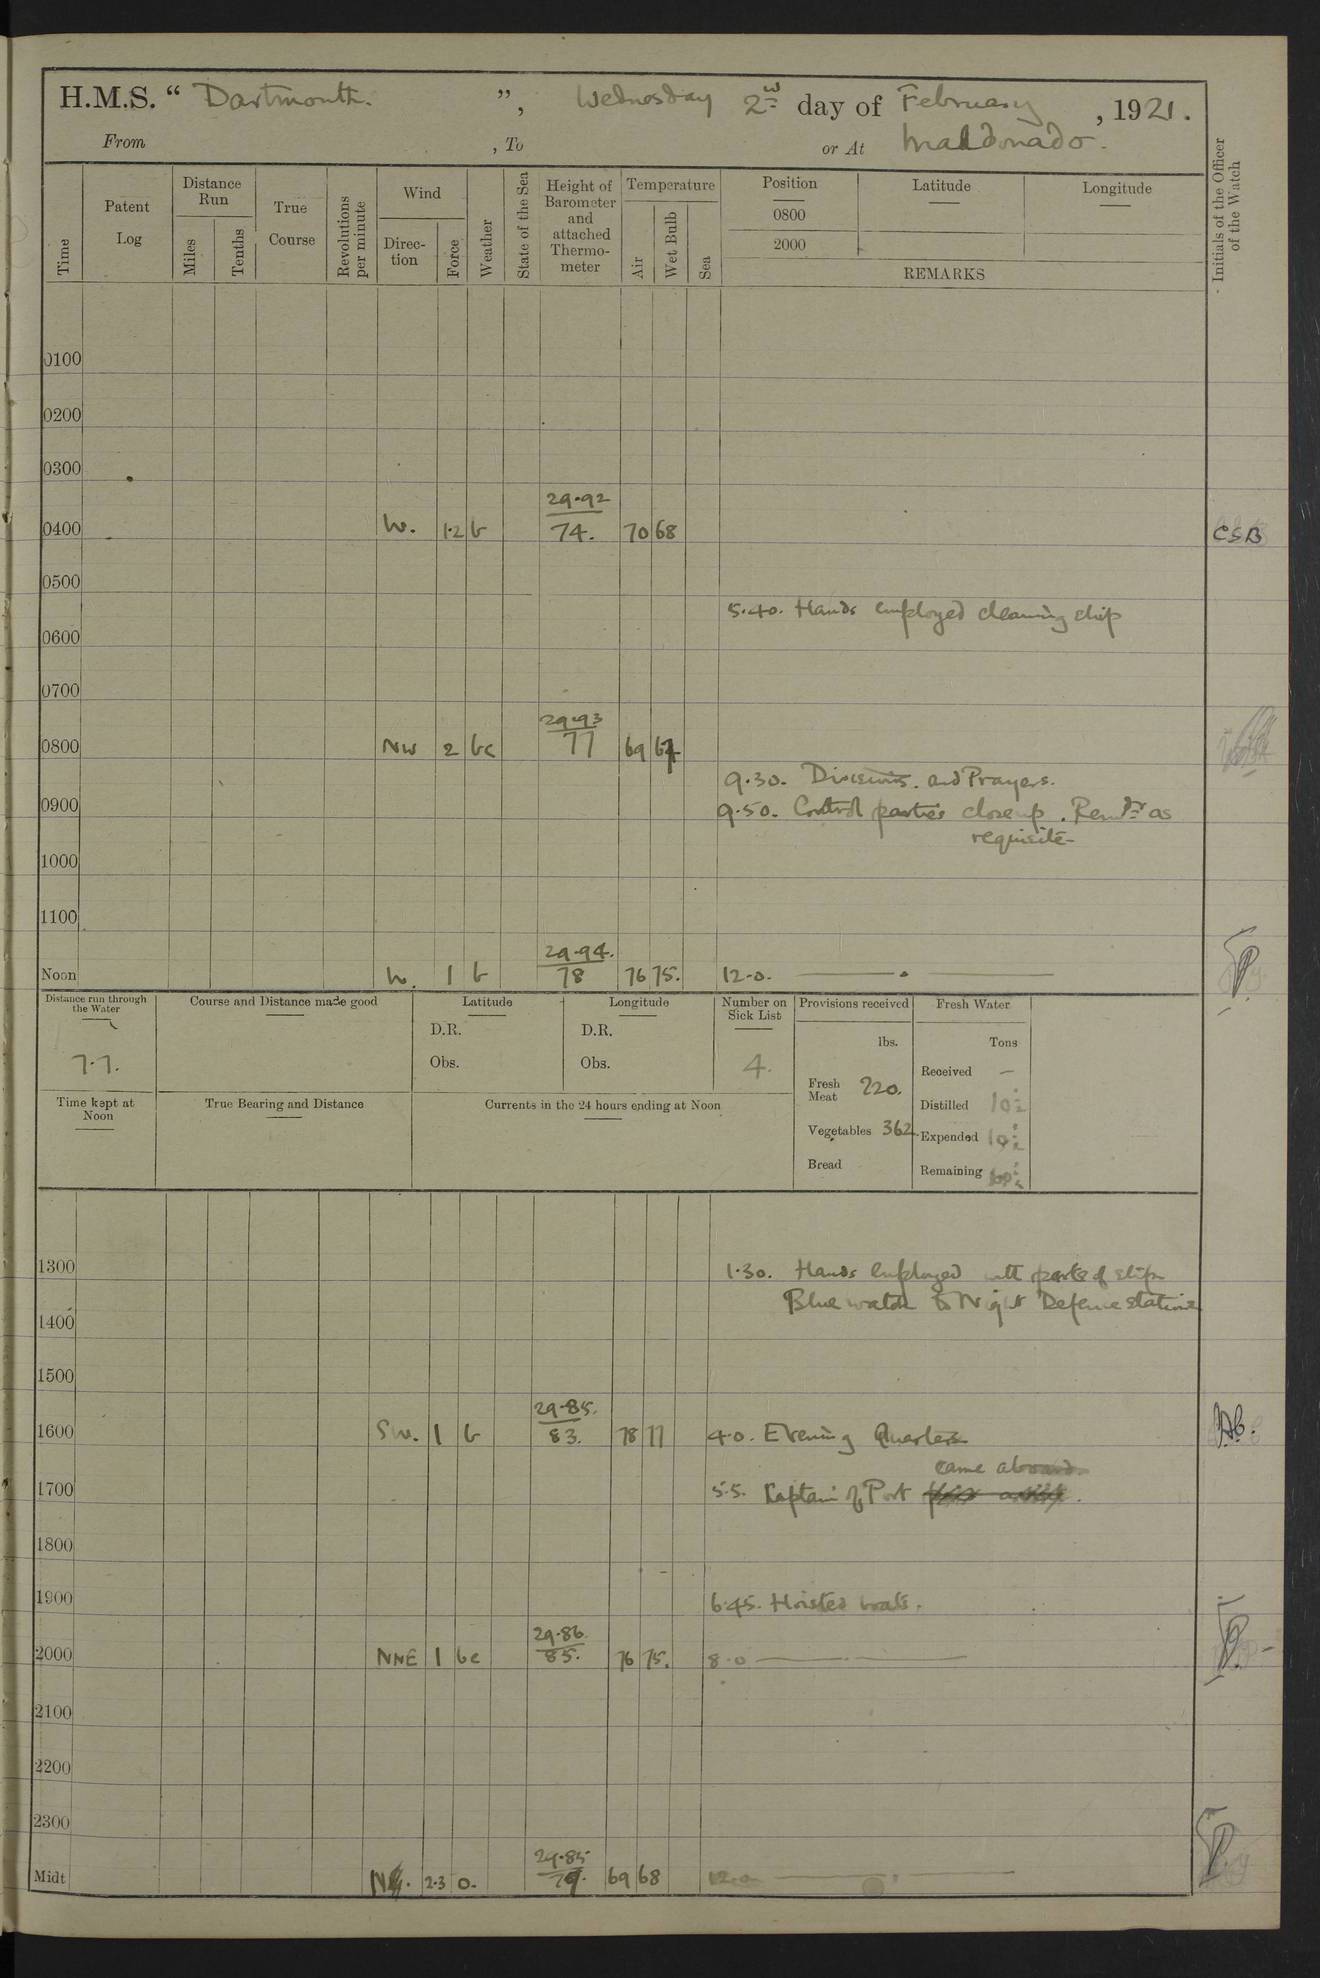 H.M.S. “ Dartmouth. ”, Wednesday 2nd day of February, 1921.
From , To or At Maldonado.
Time
Patent Log
Distance Run
Miles
Tenths
True Course
Revolutions per minute
Wind
Direction
Force
Weather
State of the Sea
Height of Barometer and attached Thermometer
Temperature
Air
Wet Bulb
Sea
Position
0800
2000
Latitude
Longitude
REMARKS
Initials of the Officer of the Watch
0100
0200
0300
29.92
0400 W. 1.2 b 74. 70 68 CSB
0500
5.40. Hands employed cleaning ship
0600
0700
29.93
0800 NW 2 bc 77 69 67
9.30. Divisions. and Prayers.
0900 9.50. Control parties close up. Remdr as
requisite
1000
1100
29.94.
Noon W. 1 b 78 76 75. 12.0.
Distance run through the Water
7.7.
Time kept at Noon
Course and Distance made good
True Bearing and Distance
Latitude
D.R.
Obs.
Longitude
D.R.
Obs.
Currents in the 24 hours ending at Noon
Number on Sick List
4.
Provisions received
lbs.
Fresh Meat 220.
Vegetables 362.
Bread
Fresh Water
Tons
Received —
Distilled
Expended
Remaining
1300 1.30. Hands employed with parts of ship
Blue watch to Night Defence stations
1400
1500
29.85.
1600 SW. 1 b 83. 78 77 4.0. Evening Quarters
came aboard.
1700 5.5. Captain of Port
1800
1900 6.45. Hoisted boats.
29.86.
2000 NNE 1 bc 85. 76 75. 8.0
2100
2200
2300
29.85
Midt 2.3 o. 79. 69 68 12.0